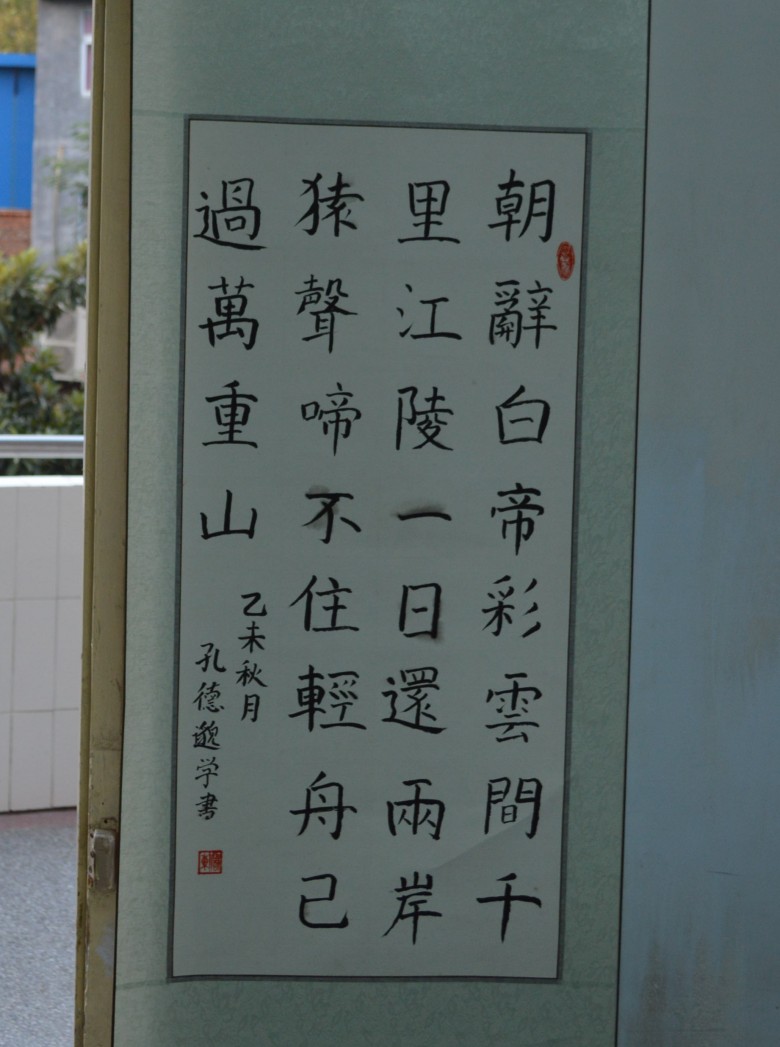 朝辭白帝彩雲間千
里江陵一日還兩岸
猿聲啼不住輕舟己
過萬重山
乙未秋月
孔德邈学書